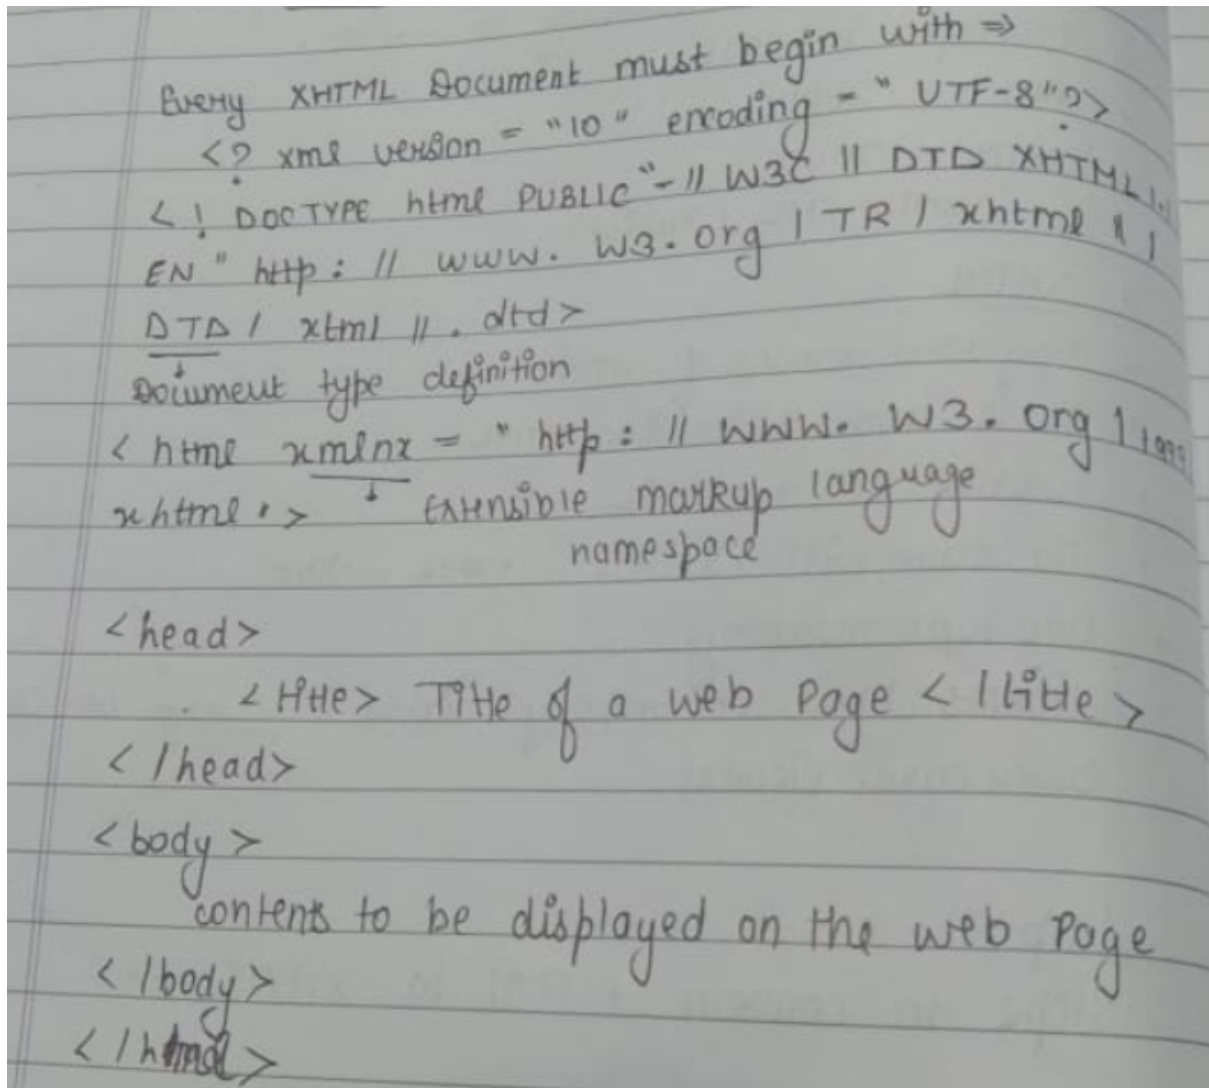 Every XHTML Document must begin with ⇒
<? xml version = "10" encoding = "UTF-8"?>
<! DOCTYPE html PUBLIC "-// W3C // DTD XHTML 1.1
EN" http: // www. W3.org / TR / xhtml 11 /
DTD / xtml 11 . dtd>
↓
Document type definition
< html xmlnx = " http: // www. W3. Org / 1999
xhtml '> ↓ Extensible markup language
namespace
<head>
<title> Title of a web Page < /title >
< /head>
<body >
contents to be displayed on the web Page
< /body>
< /html >